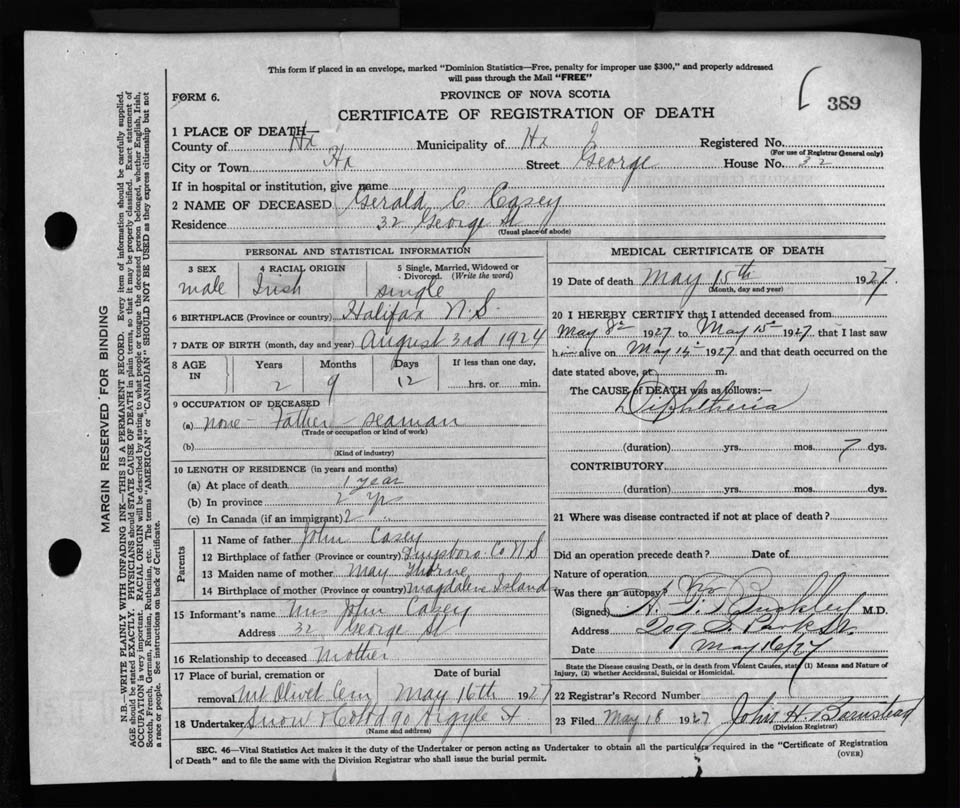 This form if placed in an envelope, marked "Dominion Statistics—Free, penalty for improper use $300," and properly addressed
will pass through the Mail "FREE"
FORM 6.
PROVINCE OF NOVA SCOTIA
389
CERTIFICATE OF REGISTRATION OF DEATH
1 PLACE OF DEATH—
County of Hx Municipality of Hx Registered No.
(For use of Registrar General only)
City or Town Hx Street George House No. 32
If in hospital or institution, give name
2 NAME OF DECEASED Gerald C. Casey
Residence 32 George St
(Usual place of abode)
PERSONAL AND STATISTICAL INFORMATION
3 SEX
male
4 RACIAL ORIGIN
Irish
5 Single, Married, Widowed or Divorced. (Write the word)
single
6 BIRTHPLACE (Province or country) Halifax N.S.
7 DATE OF BIRTH (month, day and year) August 3rd 1924
8 AGE IN
Years Months Days If less than one day,
2 9 12 hrs. or min.
9 OCCUPATION OF DECEASED
(a) none - Father seaman
(Trade or occupation or kind of work)
(b)
(Kind of industry)
10 LENGTH OF RESIDENCE (in years and months)
(a) At place of death 1 year
(b) In province 2 yrs
(c) In Canada (if an immigrant) 2
Parents
11 Name of father John Casey
12 Birthplace of father (Province or country) Guysboro Co N S
13 Maiden name of mother May Thorne
14 Birthplace of mother (Province or country) Magdalen Island
15 Informant's name Mrs John Casey
Address 32 George St
16 Relationship to deceased Mother
17 Place of burial, cremation or Date of burial
removal Mt Olivet Cem May 16th 1927
18 Undertaker Snow & Co Ltd 90 Argyle St
(Name and address)
MEDICAL CERTIFICATE OF DEATH
19 Date of death May 15th 1927
(Month, day and year)
20 I HEREBY CERTIFY that I attended deceased from
May 8th 1927 to May 15th 1927, that I last saw
him alive on May 14th 1927, and that death occurred on the
date stated above, at m.
The CAUSE of DEATH was as follows:—
Diphtheria
(duration) yrs. mos. 7 dys.
CONTRIBUTORY
(duration) yrs. mos. dys.
21 Where was disease contracted if not at place of death?
Did an operation precede death? Date of
Nature of operation
Was there an autopsy? No
(Signed) Buckley M.D.
Address 209 S. Park St.
Date May 16/27
State the Disease causing Death, or in death from Violent Causes, state (1) Means and Nature of
Injury, (2) whether Accidental, Suicidal or Homicidal.
22 Registrar's Record Number
23 Filed May 18 1927 John H Barnstead
(Division Registrar)
SEC. 46—Vital Statistics Act makes it the duty of the Undertaker or person acting as Undertaker to obtain all the particulars required in the "Certificate of Registration
of Death" and to file the same with the Division Registrar who shall issue the burial permit.
(OVER)
MARGIN RESERVED FOR BINDING
N.B.—WRITE PLAINLY WITH UNFADING INK—THIS IS A PERMANENT RECORD. Every item of information should be carefully supplied.
AGE should be stated EXACTLY. PHYSICIANS should STATE CAUSE OF DEATH in plain terms, so that it may be properly classified. Exact statement of
OCCUPATION is very important. RACIAL ORIGIN will be described by stating to what people or tongue the deceased person belonged, whether English, Irish,
Scotch, French, German, Russian, Ruthenian, etc. The terms "AMERICAN" or "CANADIAN" SHOULD NOT BE USED as they express citizenship but not
a race or people. See instructions on back of Certificate.